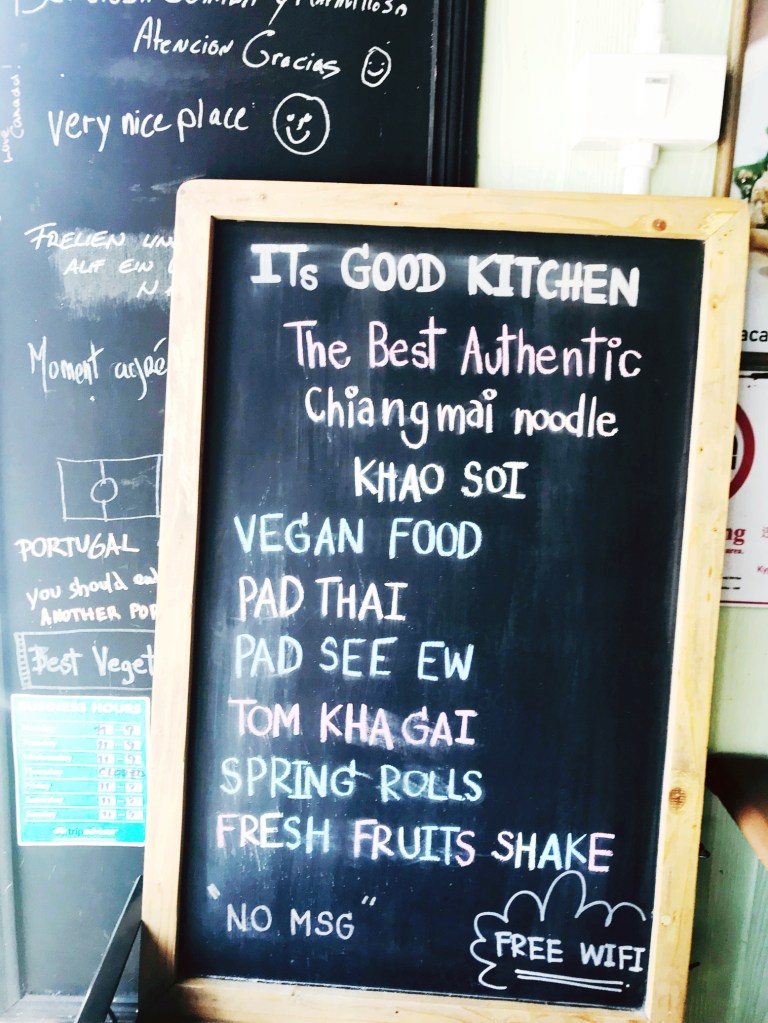 Atencion Gracias
very nice place
Love Canada!
FRELIEN UN
AUF EIN
Moment
PORTUGAL
you should
ANOTHER POR
Best Veget
BUSINESS HOURS
CLOSED
Friday
Sunday
tripadvisor
ITs GOOD KITCHEN
The Best Authentic
Chiangmai noodle
KHAO SOI
VEGAN FOOD
PAD THAI
PAD SEE EW
TOM KHA GAI
SPRING ROLLS
FRESH FRUITS SHAKE
"NO MSG"
FREE WIFI
aca
ng
area.